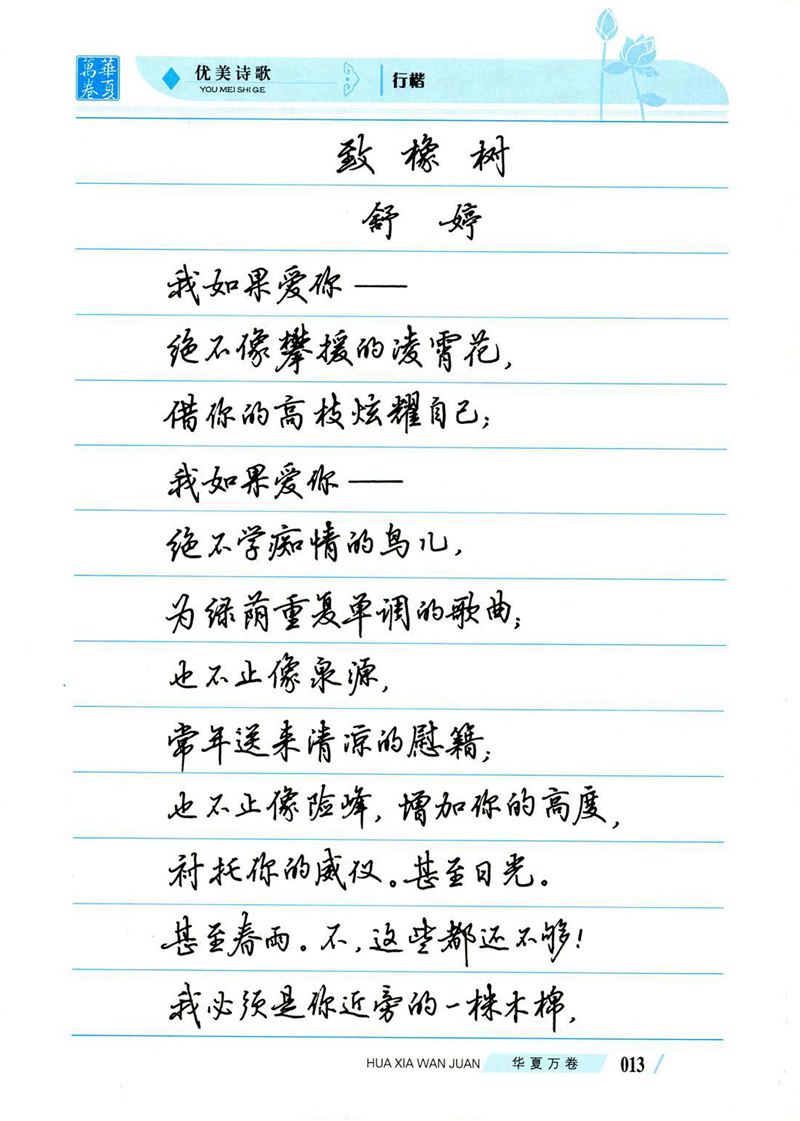 華夏萬卷
优美诗歌
YOU MEI SHI GE
行楷
致橡树
舒婷
我如果爱你——
绝不像攀援的凌霄花，
借你的高枝炫耀自己；
我如果爱你——
绝不学痴情的鸟儿，
为绿荫重复单调的歌曲；
也不止像泉源，
常年送来清凉的慰籍；
也不止像险峰，增加你的高度，
衬托你的威仪。甚至日光。
甚至春雨。不，这些都还不够！
我必须是你近旁的一株木棉，
HUA XIA WAN JUAN
华夏万卷
013